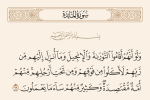 سورة المائدة
ولو أنهم أقاموا التورىة والإنجيل وما أنزل إليهم من
ربهم لأكلوا من فوقهم ومن تحت أرجلهم منهم
أمة مقتصدة وكثير منهم ساء ما يعملون